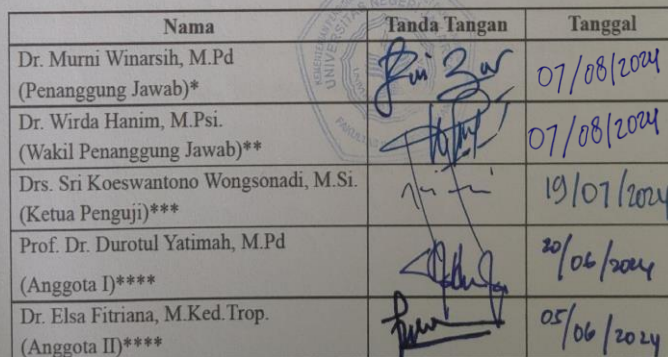 Nama Tanda Tangan Tanggal
Dr. Murni Winarsih, M.Pd
(Penanggung Jawab)* 07/08/2024
Dr. Wirda Hanim, M.Psi.
(Wakil Penanggung Jawab)** 07/08/2024
Drs. Sri Koeswantono Wongsonadi, M.Si.
(Ketua Penguji)*** 19/07/2024
Prof. Dr. Durotul Yatimah, M.Pd
(Anggota I)**** 20/06/2024
Dr. Elsa Fitriana, M.Ked.Trop.
(Anggota II)**** 05/06/2024
UNIVERSITAS NEGERI